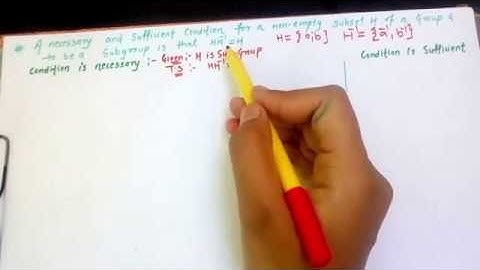 A necessary and Sufficient Condition for a non-empty subset H of a Group G
to be a Subgroup is that HH⁻¹=H H={a,b} H⁻¹={a⁻¹,b⁻¹}
Condition is necessary :- Given:- H is Subgroup Condition is Sufficient
T S :- HH⁻¹